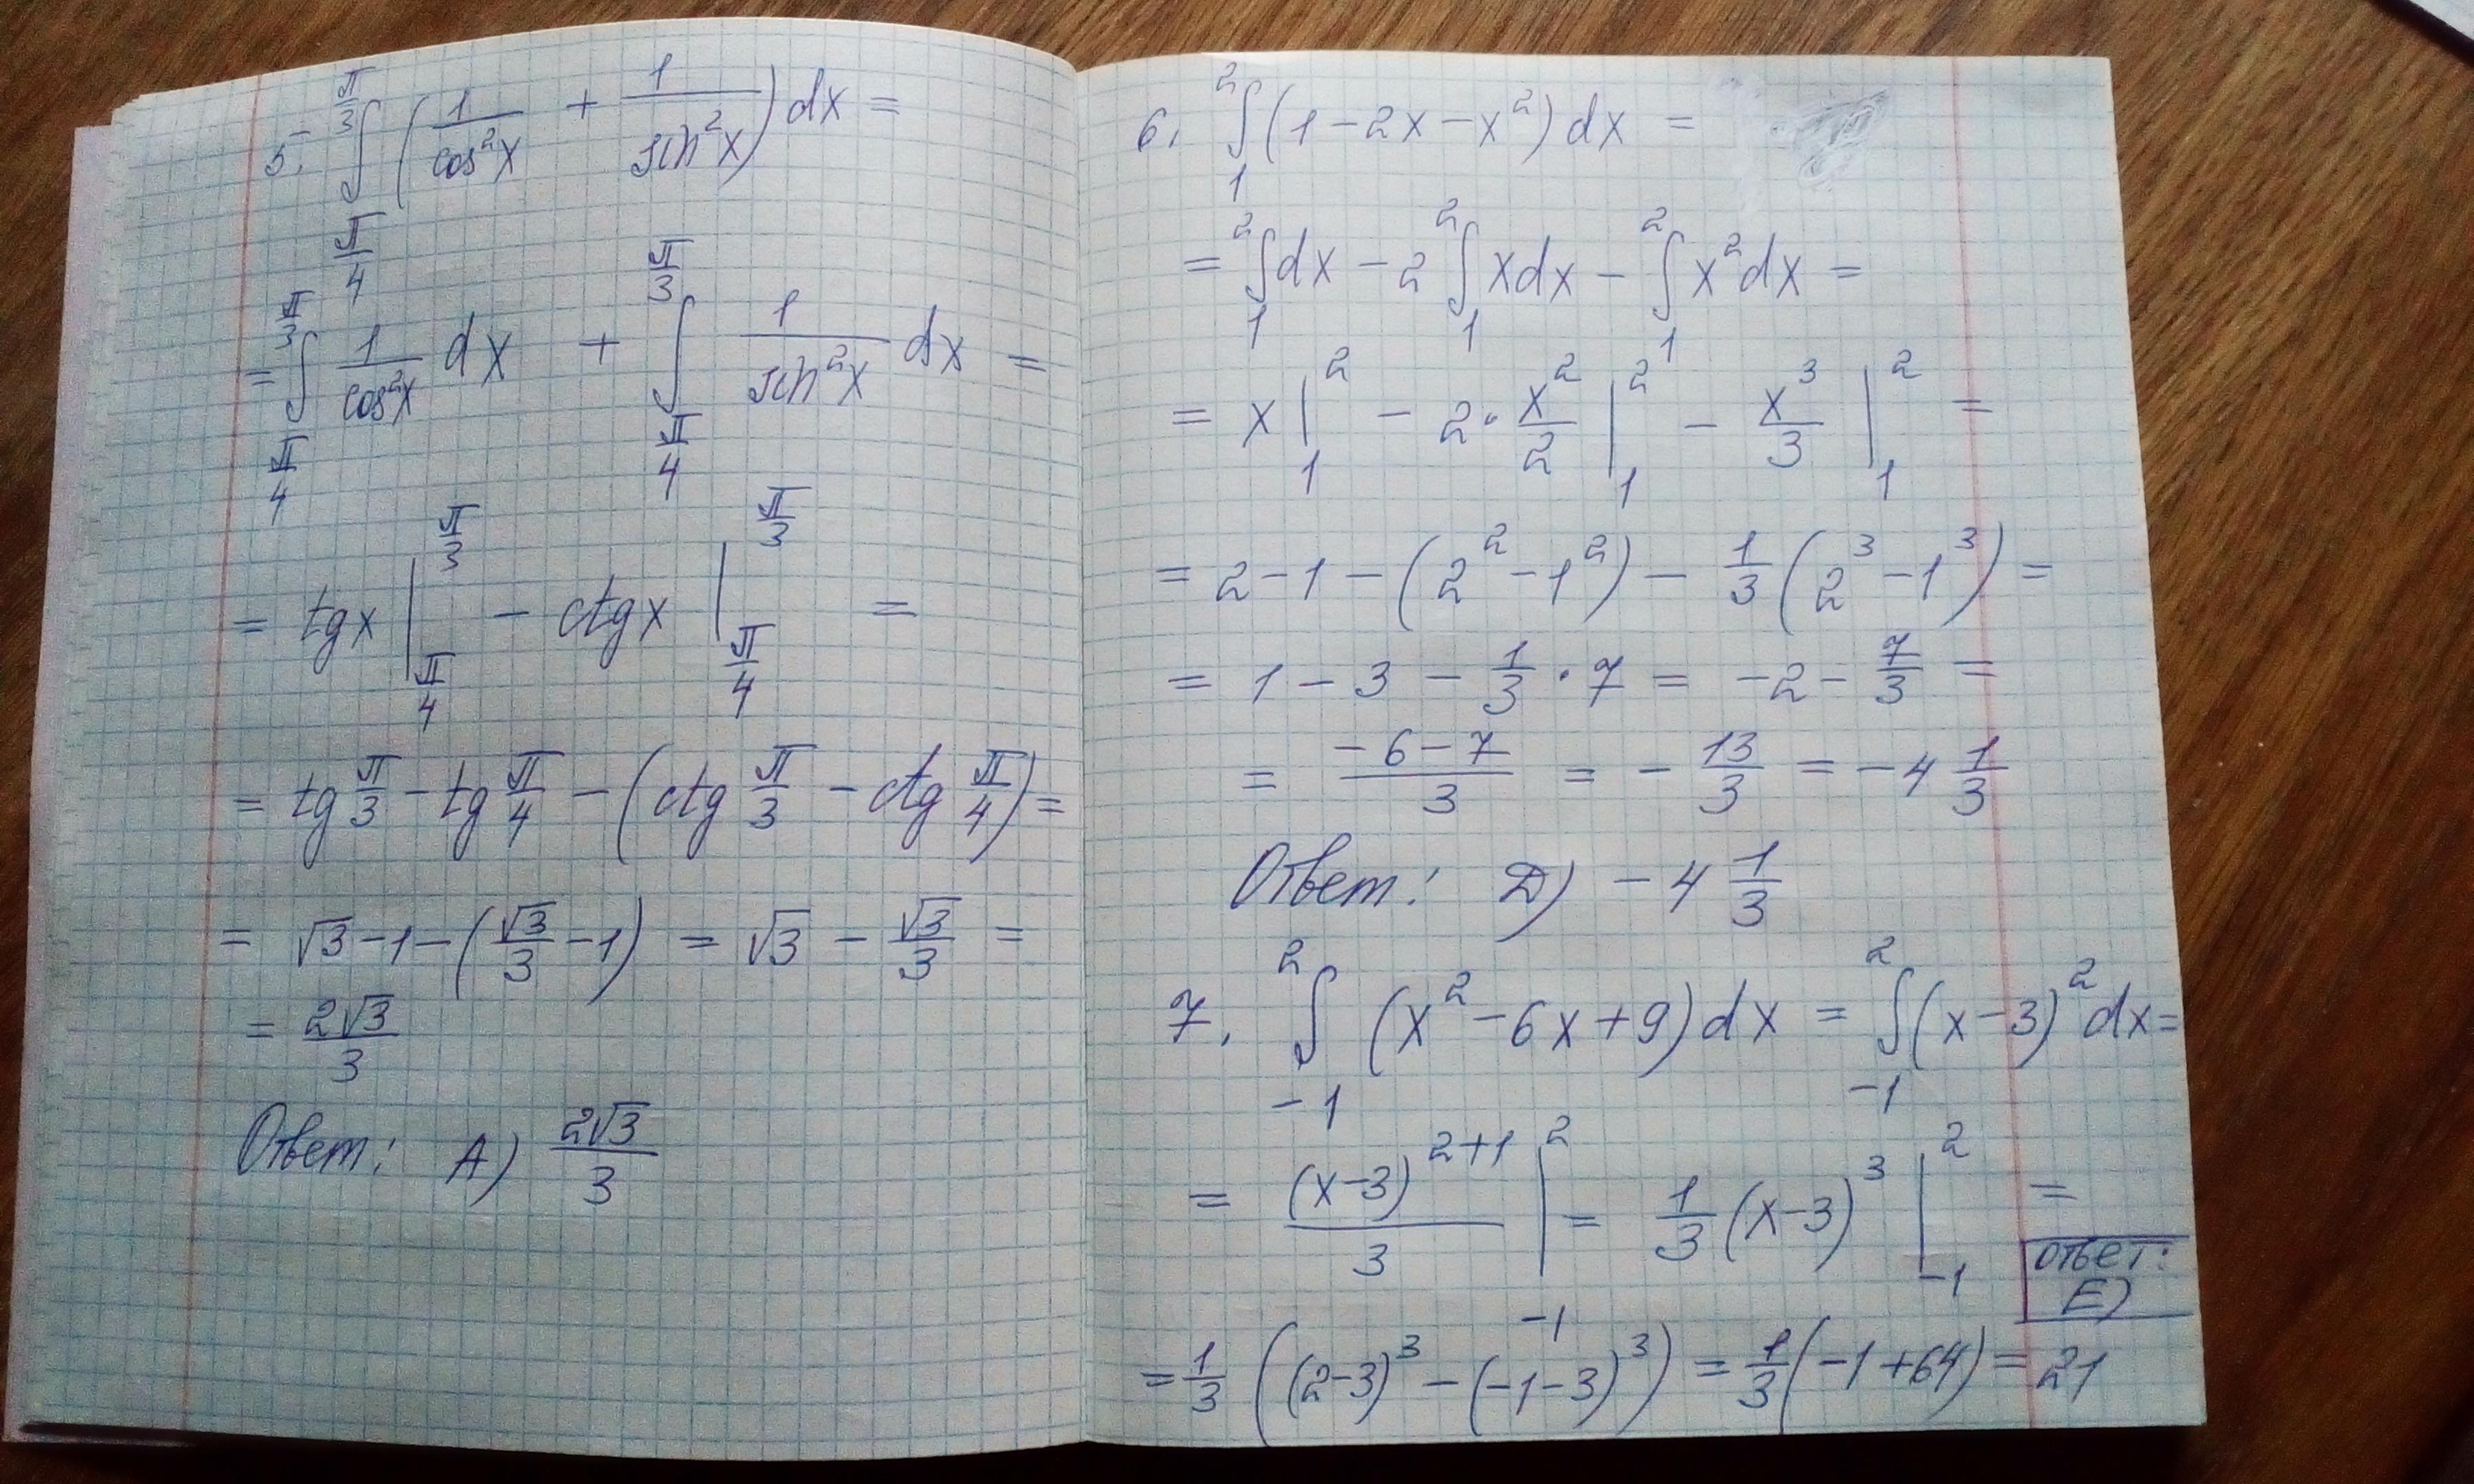 5. ∫_{π/4}^{π/3} (1/cos²x + 1/sin²x) dx =
= ∫_{π/4}^{π/3} 1/cos²x dx + ∫_{π/4}^{π/3} 1/sin²x dx =
= tg x |_{π/4}^{π/3} − ctg x |_{π/4}^{π/3} =
= tg π/3 − tg π/4 − (ctg π/3 − ctg π/4) =
= √3 − 1 − (√3/3 − 1) = √3 − √3/3 =
= 2√3/3
Ответ: А) 2√3/3
6. ∫_1^2 (1 − 2x − x²) dx =
= ∫_1^2 dx − 2 ∫_1^2 x dx − ∫_1^2 x² dx =
= x |_1^2 − 2 · x²/2 |_1^2 − x³/3 |_1^2 =
= 2 − 1 − (2² − 1²) − 1/3 (2³ − 1³) =
= 1 − 3 − 1/3 · 7 = −2 − 7/3 =
= (−6 − 7)/3 = − 13/3 = −4 1/3
Ответ: Д) −4 1/3
7. ∫_{−1}^2 (x² − 6x + 9) dx = ∫_{−1}^2 (x − 3)² dx =
= (x−3)^{2+1}/3 |_{−1}^2 = 1/3 (x−3)³ |_{−1}^2 =
= 1/3 ((2−3)³ − (−1−3)³) = 1/3 (−1 + 64) = 21
Ответ:
Е)